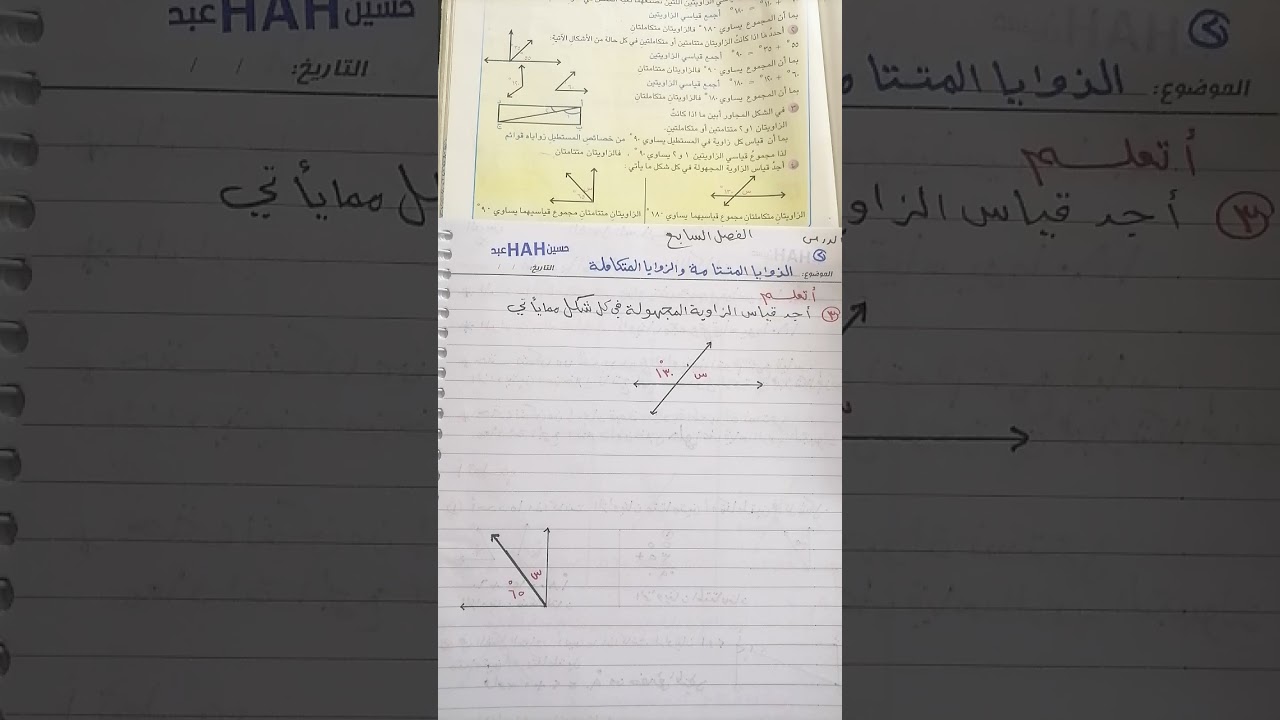 أجمع قياسي الزاويتين
بما أن المجموع يساوي ١٨٠° فالزاويتان متكاملتان
أحدد ما اذا كانت الزاويتان متتامتين أو متكاملتين في كل حالة من الأشكال الآتية:
٥٥° + ٣٥° = ٩٠° أجمع قياسي الزاويتين
بما أن المجموع يساوي ٩٠° فالزاويتان متتامتان
٦٠° + ١٢٠° = ١٨٠° أجمع قياسي الزاويتين
بما أن المجموع يساوي ١٨٠° فالزاويتان متكاملتان
٣ في الشكل المجاور أبين ما اذا كانت
الزاويتان ١ و ٢ متتامتين أو متكاملتين.
بما أن قياس كل زاوية في المستطيل يساوي ٩٠° من خصائص المستطيل زواياه قوائم
لذا مجموع قياسي الزاويتين ١ و ٢ يساوي ٩٠° ، فالزاويتان متتامتان
٤ أجد قياس الزاوية المجهولة في كل شكل مما يأتي:
الزاويتان متكاملتان مجموع قياسيهما يساوي ١٨٠°
الزاويتان متتامتان مجموع قياسيهما يساوي ٩٠°
الدرس
الفصل السابع
حسين HAH عبد
الموضوع: الزوايا المتتامة والزوايا المتكاملة
التاريخ: / /
أتعلم
٣ أجد قياس الزاوية المجهولة في كل شكل مما يأتي
١٣٠° س
س
٦٥°
حسين HAH عبد
التاريخ: / /
ل مما يأتي
الموضوع: الزوايا المتتا م
أتعلم
٣ أجد قياس الزاو